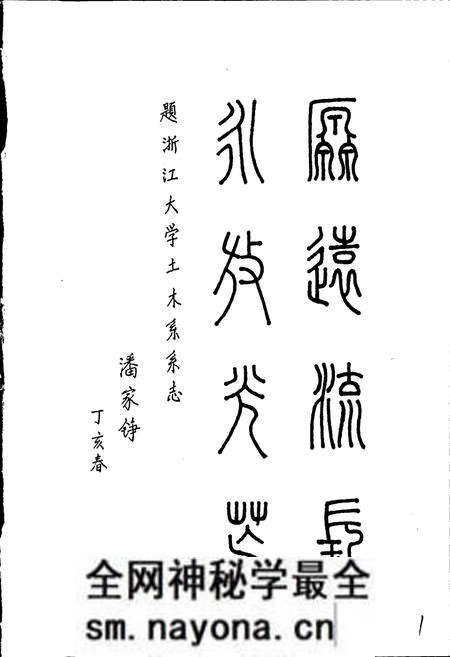 厵遠流長
永放光芒
题浙江大学土木系系志
潘家铮
丁亥春
全网神秘学最全
sm.nayona.cn
1